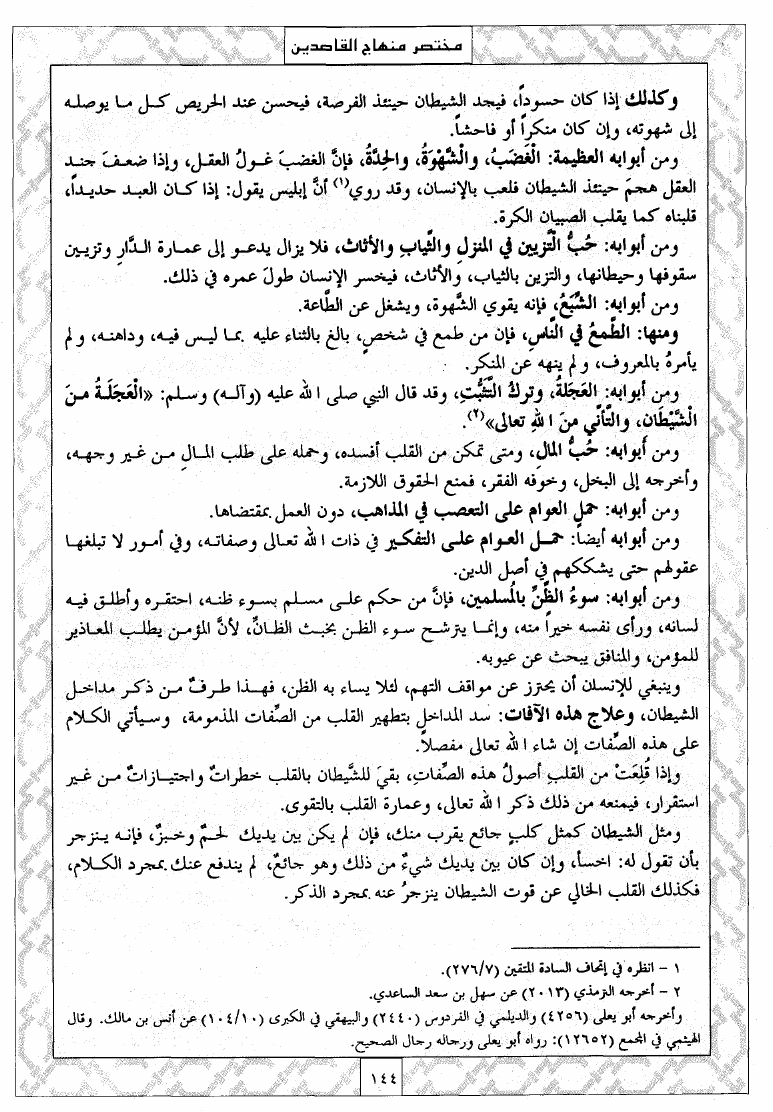 مختصر منهاج القاصدين
وكذلك إذا كان حسوداً، فيجد الشيطان حينئذ الفرصة، فيحسن عند الحريص كل ما يوصله
إلى شهوته، وإن كان منكراً أو فاحشاً.
ومن أبوابه العظيمة: الْغَضَبُ، والشَّهْوَةُ، والحِدَّةُ، فإنَّ الغضبَ غولُ العقل، وإذا ضعف جند
العقل هجمَ حينئذ الشيطان فلعب بالإنسان، وقد روي(١) أنَّ إبليس يقول: إذا كان العبد حديداً،
قلبناه كما يقلب الصبيان الكرة.
ومن أبوابه: حُبُّ الْتَّزيين في المنزلِ والثِّيابِ والأثاث، فلا يزال يدعو إلى عمارة الدَّارِ وتزيين
سقوفها وحيطانها، والتزين بالثياب، والأثاث، فيخسر الإنسان طولَ عمره في ذلك.
ومن أبوابه: الشِّبَعُ، فإنه يقوي الشَّهوة، ويشغل عن الطَّاعة.
ومنها: الطَّمعُ في النَّاسِ، فإن من طمع في شخصٍ، بالغ بالثناء عليه بما ليس فيه، وداهنه، ولم
يأمرهُ بالمعروف، ولم ينهه عن المنكر.
ومن أبوابه: العَجَلةُ، وتركُ التَّثَبُّتِ، وقد قال النبي صلى الله عليه (وآله) وسلم: «الْعَجَلَةُ منَ
الْشَّيْطَان، والتَّأنِّي منَ اللهِ تعالى»(٢).
ومن أبوابه: حُبُّ المالِ، ومتى تمكن من القلب أفسده، وحمله على طلب المالِ من غير وجهه،
وأخرجه إلى البخل، وخوفه الفقر، فمنع الحقوق اللازمة.
ومن أبوابه: حمل العوام على التعصب في المذاهب، دون العمل بمقتضاها.
ومن أبوابه أيضاً: حمل العوام على التفكير في ذات الله تعالى وصفاته، وفي أمور لا تبلغها
عقولهم حتى يشككهم في أصل الدين.
ومن أبوابه: سوءُ الظَّنِّ بالمُسلمين، فإنَّ من حكم على مسلم بسوء ظنه، احتقره وأطلق فيه
لسانه، ورأى نفسه خيراً منه، وإنما يترشح سوء الظن بخبث الظانِّ، لأنَّ المؤمن يطلب المعاذير
للمؤمن، والمنافق يبحث عن عيوبه.
وينبغي للإنسان أن يحترز عن مواقف التهم، لئلا يساء به الظن، فهذا طرفٌ من ذكر مداخل
الشيطان، وعلاج هذه الآفات: سد المداخل بتطهير القلب من الصِّفات المذمومة، وسيأتي الكلام
على هذه الصِّفات إن شاء الله تعالى مفصلاً.
وإذا قُلِعَتْ من القلبِ أصولُ هذه الصِّفاتِ، بقيَ للشَّيطان بالقلب خطراتٌ واجتيازاتٌ من غير
استقرار، فيمنعه من ذلك ذكر الله تعالى، وعمارة القلب بالتقوى.
ومثل الشيطان كمثل كلبٍ جائع يقرب منك، فإن لم يكن بين يديك لحمٌ وخبزٌ، فإنه ينزجر
بأن تقول له: اخسأ، وإن كان بين يديك شيءٌ من ذلك وهو جائعٌ، لم يندفع عنك بمجرد الكلام،
فكذلك القلب الخالي عن قوت الشيطان ينزجرُ عنه بمجرد الذكر.
١ - انظره في إتحاف السادة المتقين (٢٧٦/٧).
٢ - أخرجه الترمذي (٢٠١٣) عن سهل بن سعد الساعدي.
وأخرجه أبو يعلى (٤٢٥٦) والديلمي في الفردوس (٢٤٤٠) والبيهقي في الكبرى (١٠٤/١٠) عن أنس بن مالك. وقال
الهيثمي في المجمع (١٢٦٥٢): رواه أبو يعلى ورجاله رجال الصحيح.
١٤٤